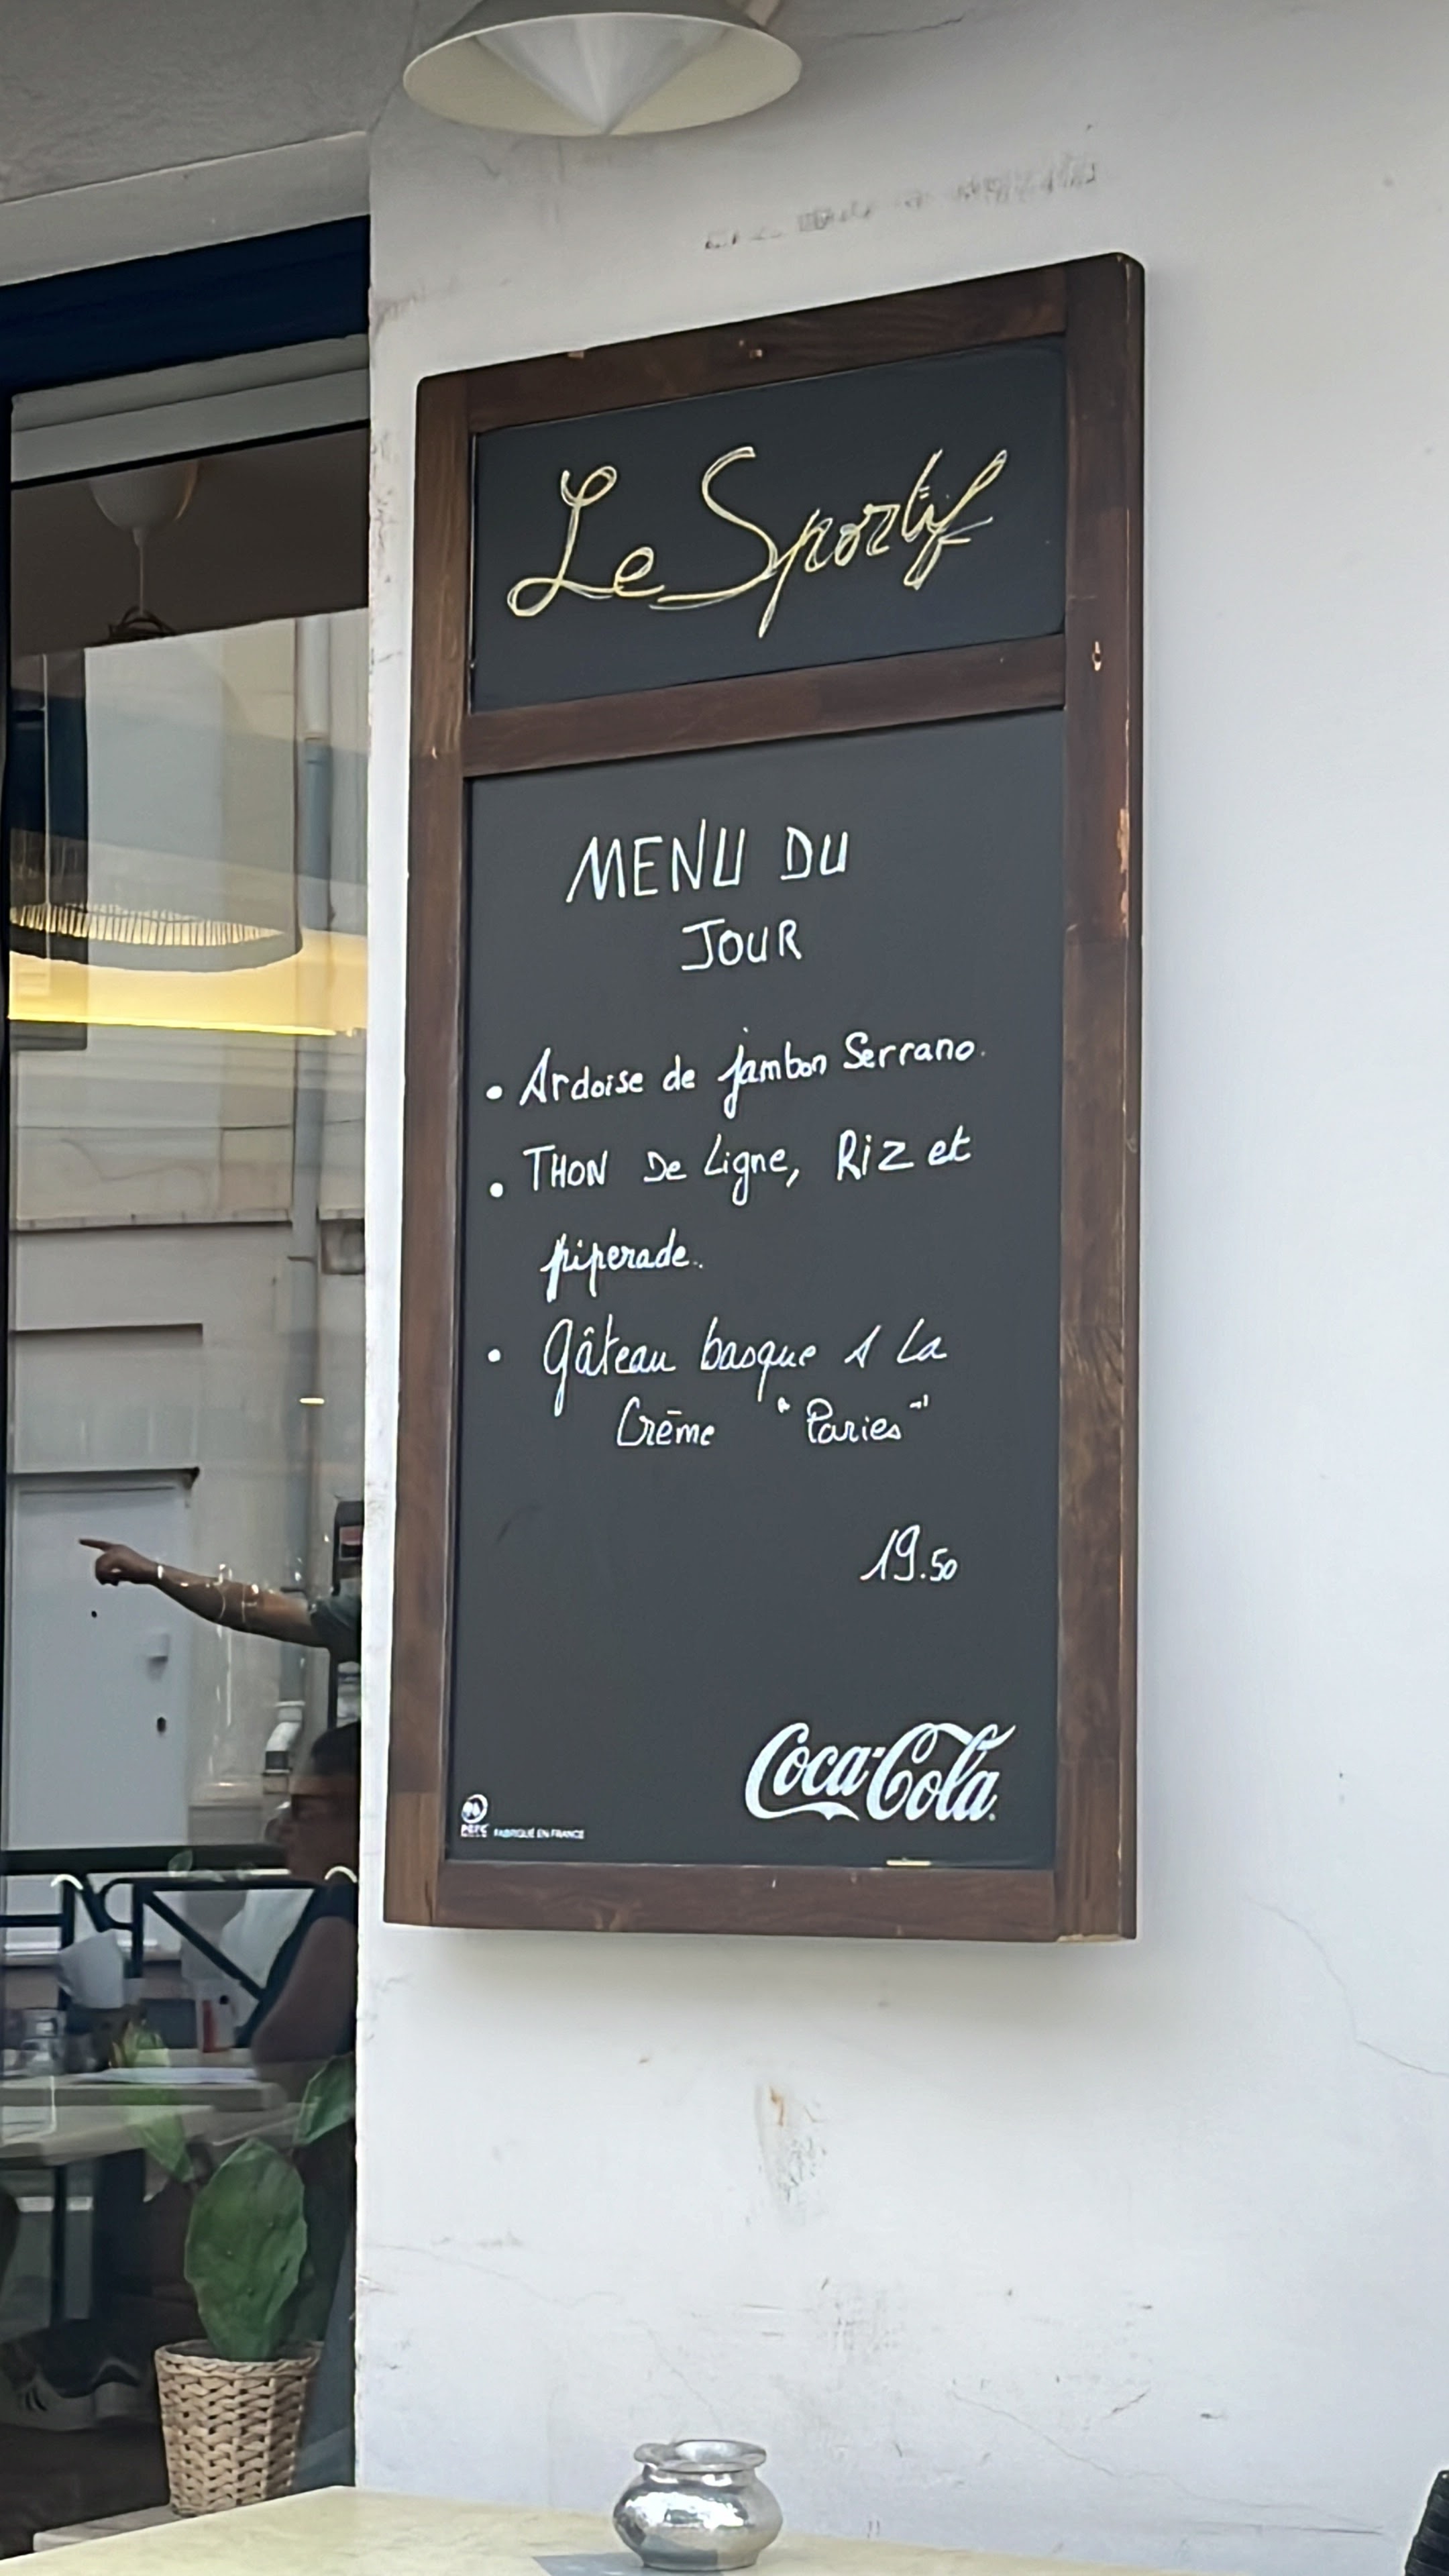 Le Sportif
MENU DU
JOUR
• Ardoise de jambon Serrano.
• THON De Ligne, Riz et
piperade.
• Gâteau basque A La
Crème "Paries"
19.50
Coca-Cola
PEFC FABRIQUÉ EN FRANCE